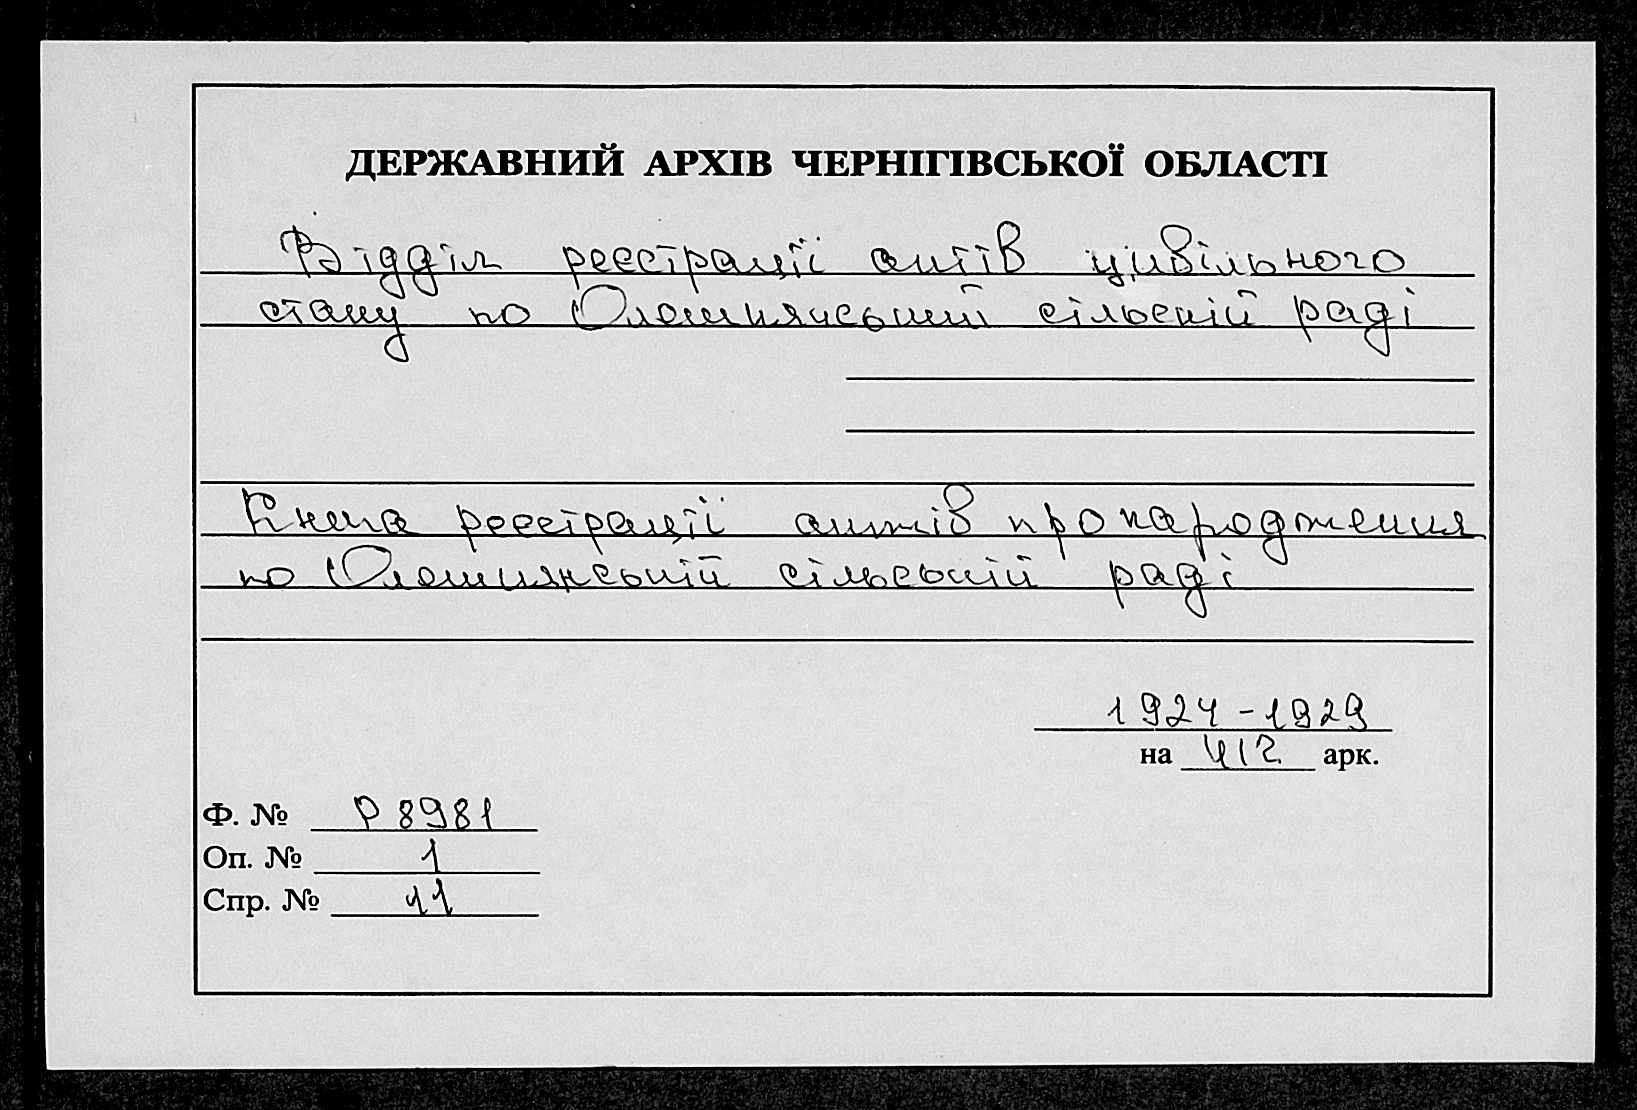 ДЕРЖАВНИЙ АРХІВ ЧЕРНІГІВСЬКОЇ ОБЛАСТІ
Відділ реєстрації актів цивільного
стану по Олешнянській сільській раді
Книга реєстрації актів про народження
по Олешнянській сільській раді
1924-1929
на 412 арк.
Ф. № Р 8981
Оп. № 1
Спр. № 11